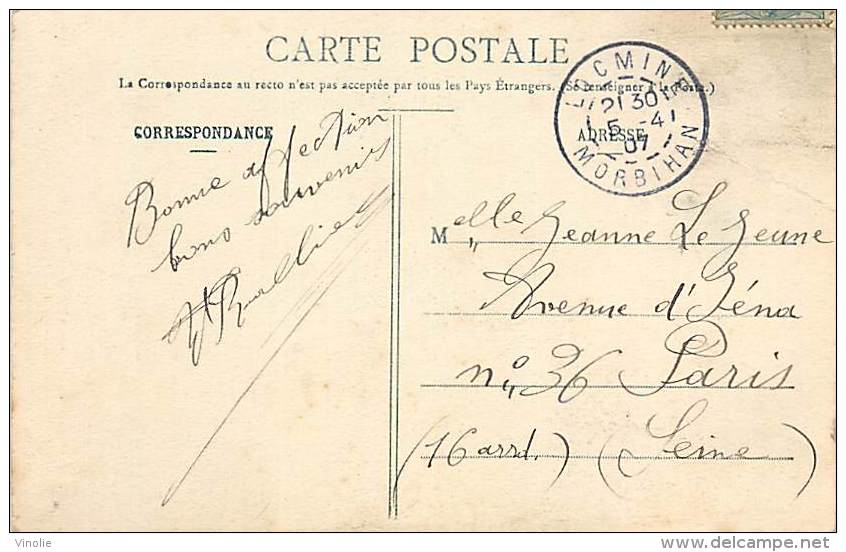 CARTE POSTALE
La Correspondance au recto n'est pas acceptée par tous les Pays Étrangers. (Se renseigner à la Poste.)
CORRESPONDANCE
Bonne affection
bons souvenirs
ADRESSE
LOCMINÉ
21 30
5 -4
07
MORBIHAN
Melle Jeanne Le Jeune
Avenue d'Iéna
n° 36 Paris
(16 arrd.) (Seine)
Vinolie
delcampe.net